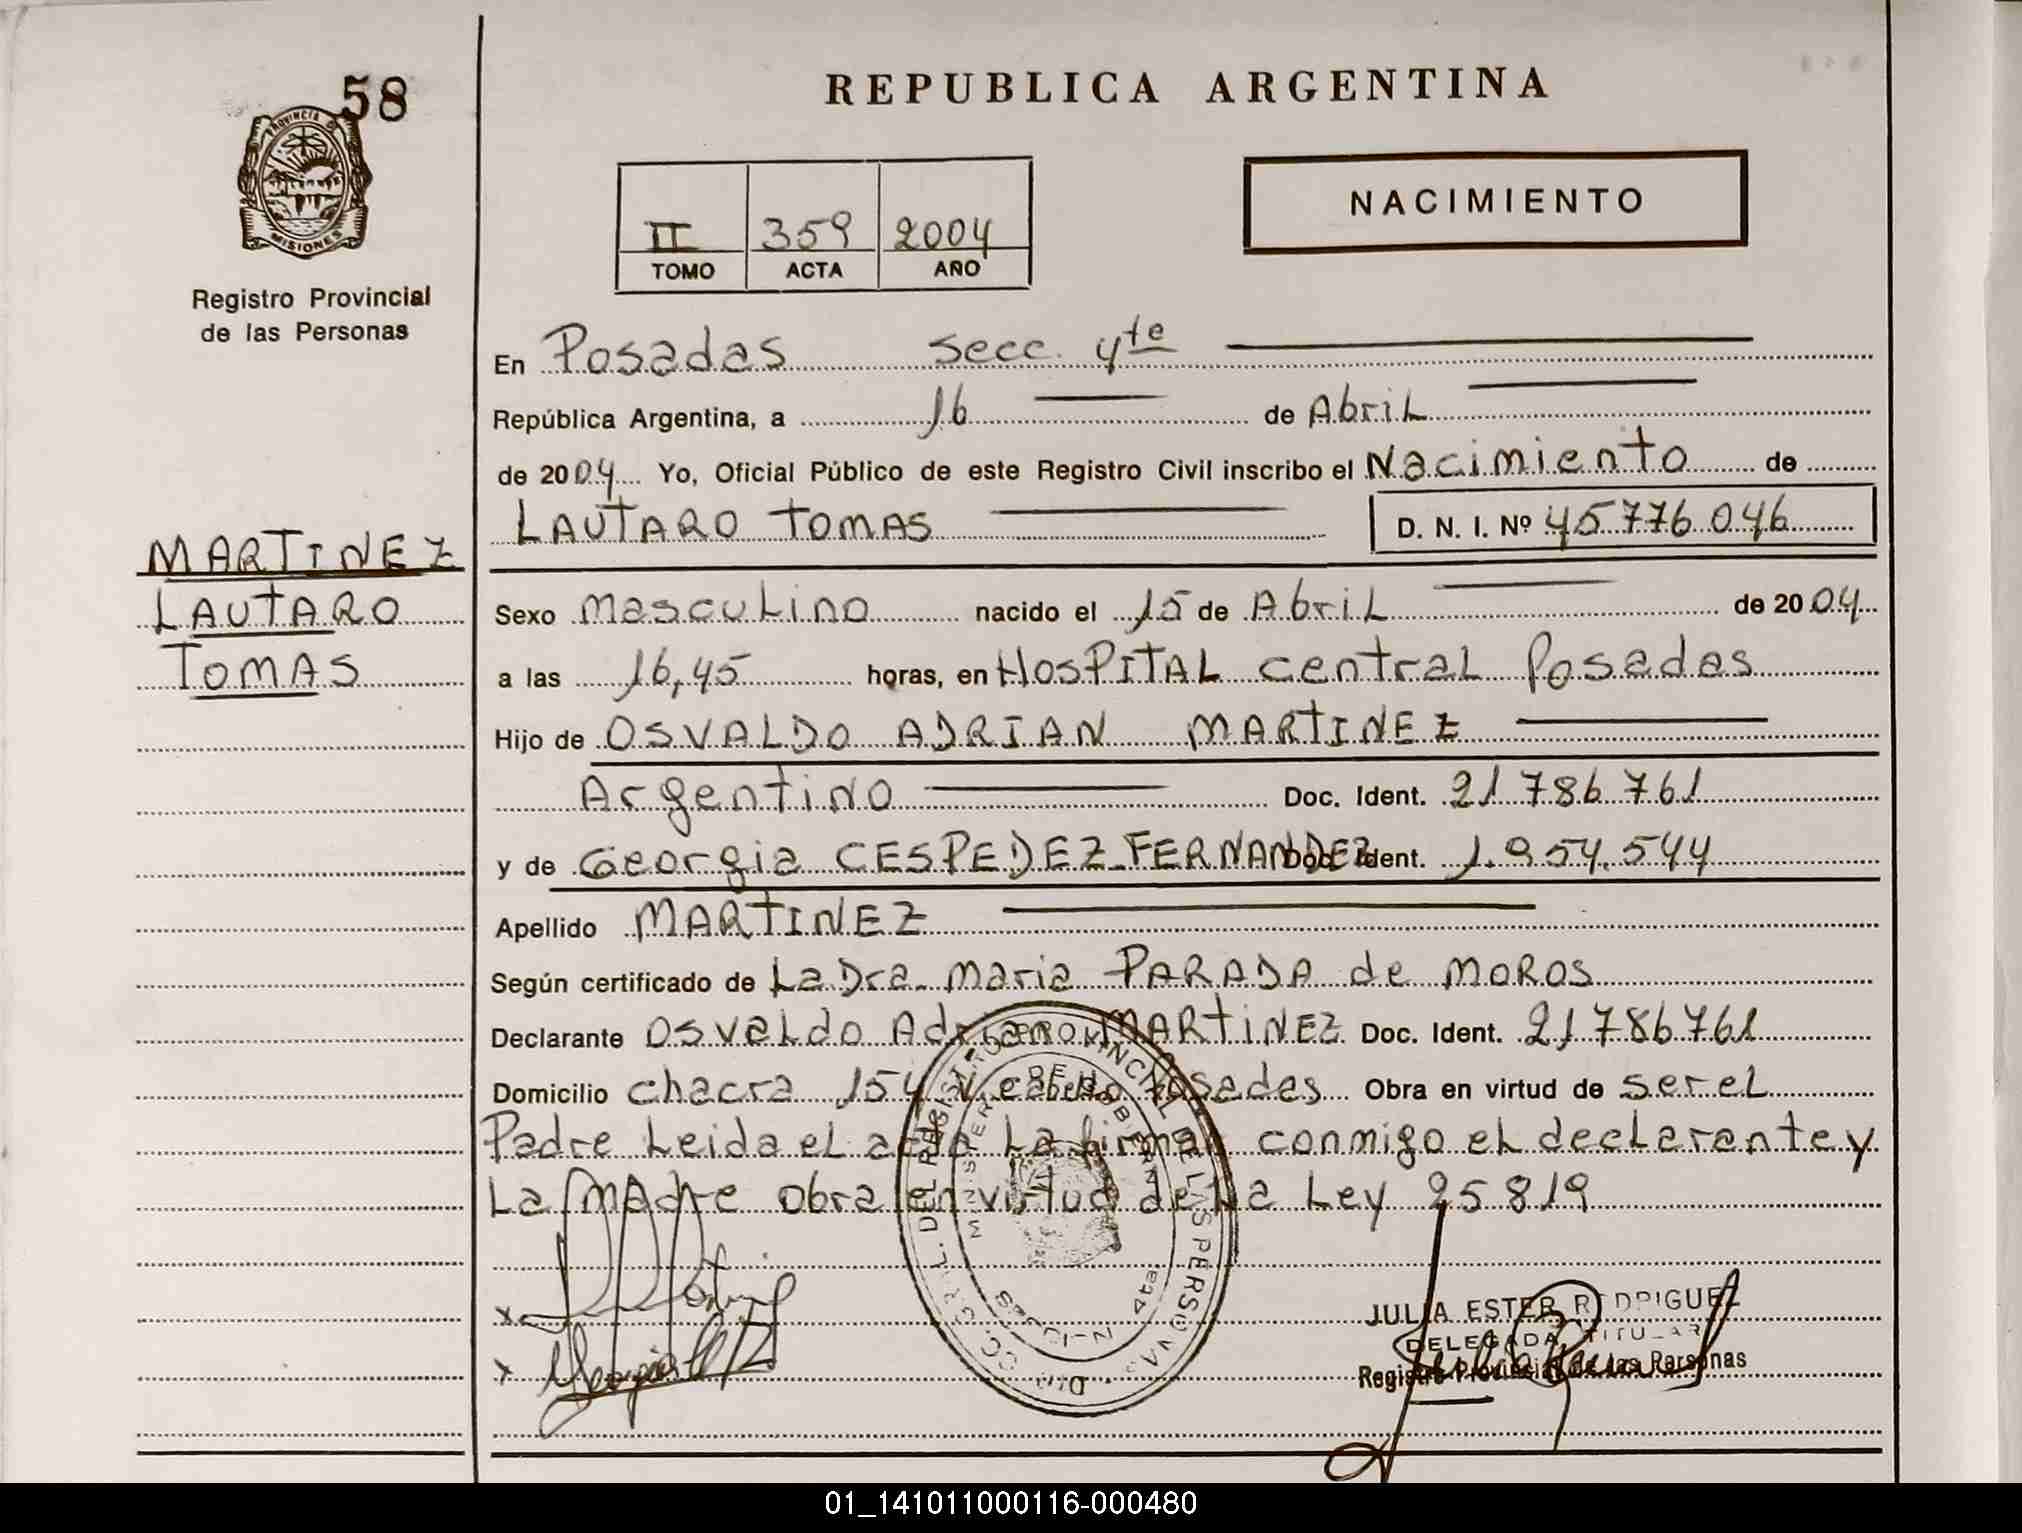 58
PROVINCIA DE
MISIONES
Registro Provincial
de las Personas
REPUBLICA ARGENTINA
NACIMIENTO
II 359 2004
TOMO ACTA AÑO
En Posadas secc. 4te
República Argentina, a 16 de AbriL
de 2004 Yo, Oficial Público de este Registro Civil inscribo el Nacimiento de
LAUTARO TOMAS D. N. I. Nº 45.776.046
MARTINEZ
LAUTARO
TOMAS
Sexo MascuLino nacido el 15 de AbriL de 2004
a las 16,45 horas, en HosPITAL centraL Posadas
Hijo de OSVALDO ADRIAN MARTINEZ
Argentino Doc. Ident. 21.786.761
y de Georgia CESPEDEZ FERNANDEZ Doc. Ident. 1.954.544
Apellido MARTINEZ
Según certificado de La Dra. Maria PARADA de MOROS
Declarante OsvaLdo Adriano MARTINEZ Doc. Ident. 21.786.761
Domicilio chacra 154 Posadas Obra en virtud de ser eL
Padre Leida eL acta La firman conmigo eL decLarante y
La MAdre obra en virtud de La Ley 25.819
DIR. GRAL. DEL REGISTRO PROVINCIAL DE LAS PERSONAS
MINISTERIO DE GOBIERNO
4ta
MISIONES
JULIA ESTER RODRIGUEZ
DELEGADA TITULAR
Registro Provincial de las Personas
01_141011000116-000480